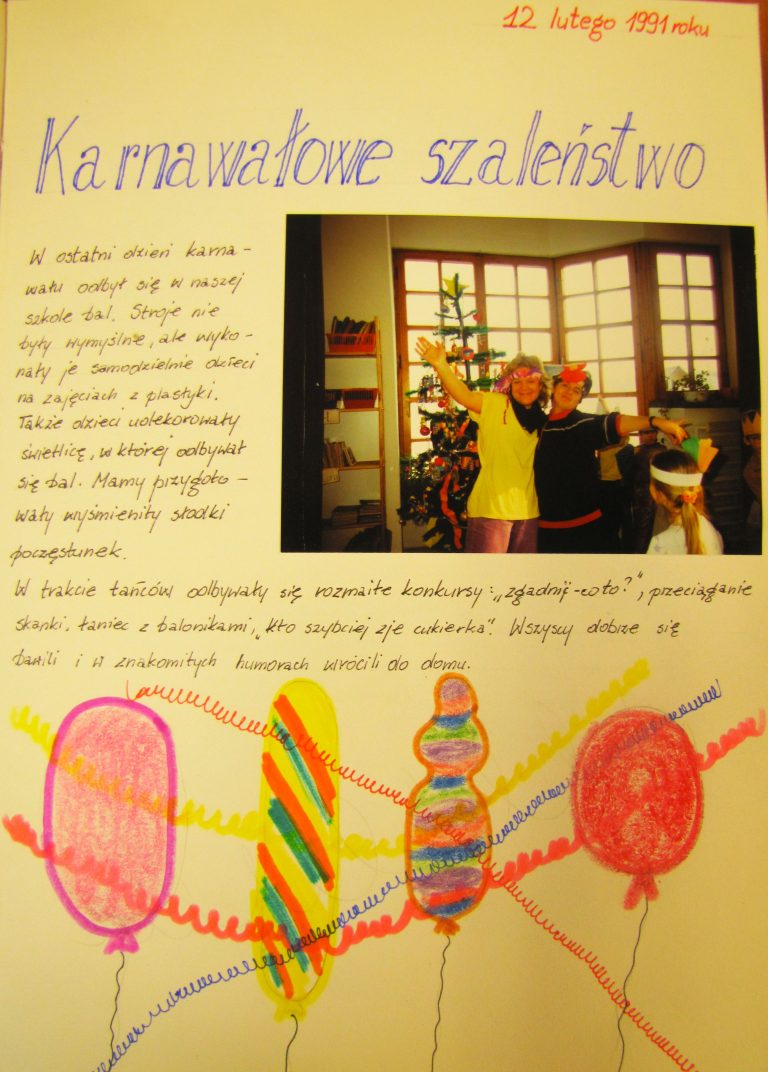 12 lutego 1991 roku
Karnawałowe szaleństwo
W ostatni dzień karna-
wału odbył się w naszej
szkole bal. Stroje nie
były wymyślne, ale wyko-
nały je samodzielnie dzieci
na zajęciach z plastyki.
Także dzieci udekorowały
świetlicę, w której odbywał
się bal. Mamy przygoto-
wały wyśmienity słodki
poczęstunek.
W trakcie tańców odbywały się rozmaite konkursy: „zgadnij-co to?", przeciąganie
skanki, taniec z balonikami, „Kto szybciej zje cukierka". Wszyscy dobrze się
bawili i w znakomitych humorach wrócili do domu.